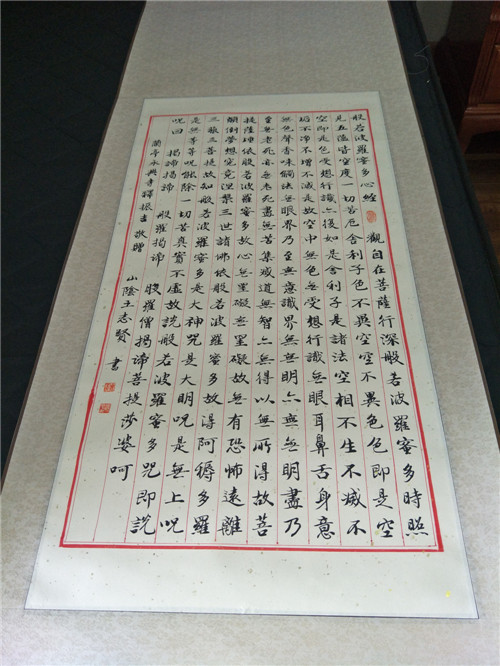 般若波羅蜜多心經 觀自在菩薩行深般若波羅蜜多時照
見五蘊皆空度一切苦厄舍利子色不異空空不異色色即是空
空即是色受想行識亦復如是舍利子是諸法空相不生不滅不
垢不淨不增不減是故空中無色無受想行識無眼耳鼻舌身意
無色聲香味觸法無眼界乃至無意識界無無明亦無無明盡乃
至無老死亦無老死盡無苦集滅道無智亦無得以無所得故菩
提薩埵依般若波羅蜜多故心無罣礙無罣礙故無有恐怖遠離
顛倒夢想究竟涅槃三世諸佛依般若波羅蜜多故得阿耨多羅
三藐三菩提故知般若波羅蜜多是大神呪是大明呪是無上呪
是無等等呪能除一切苦真實不虛故說般若波羅蜜多呪即說
呪曰 揭諦揭諦 般羅揭諦 般羅僧揭諦菩提莎婆呵
蘭亭永興寺釋振吉敬贈 山陰王志賢 書